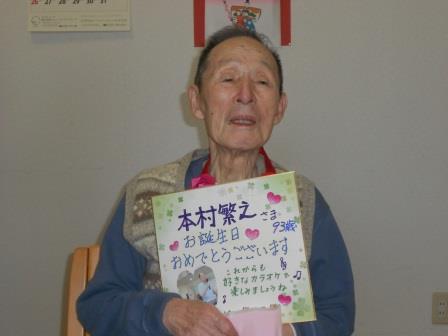 26 27 28 29 30 31
本村繁之さま
93歳
お誕生日
おめでとうございます
これからも
好きなカラオケで
楽しみましょうね